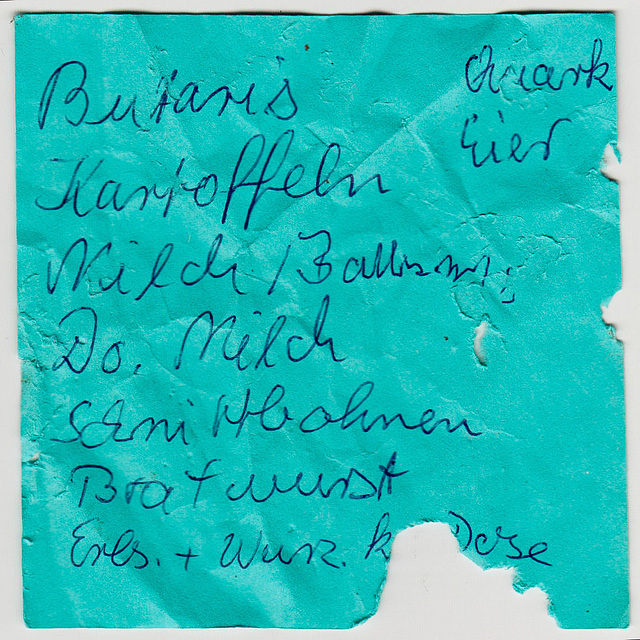 Butaris
Kartoffeln
Milch /
Do. Milch
Schnittbohnen
Bratwurst
Erbs. + Wurz. k Dose
Quark
Eier